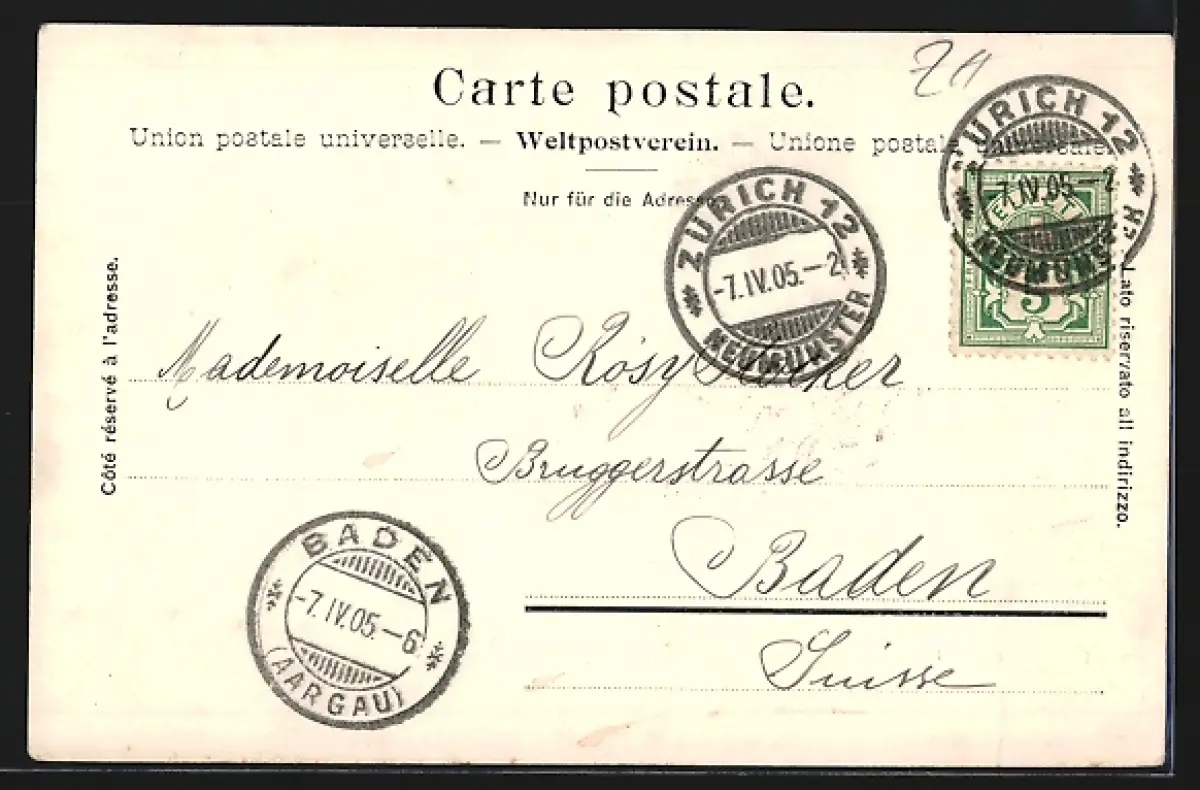 Carte postale.
Union postale universelle. — Weltpostverein. — Unione postale universale.
Nur für die Adresse
ZÜRICH 12
-7.IV.05.-2
NEUMÜNSTER
ZÜRICH 12
-7.IV.05-2
NEUMÜNSTER
5
Côté réservé à l'adresse.
Lato riservato all indirizzo.
Mademoiselle Rosy
Bruggerstrasse
Baden
Suisse
BADEN
-7.IV.05.-6
(AARGAU)